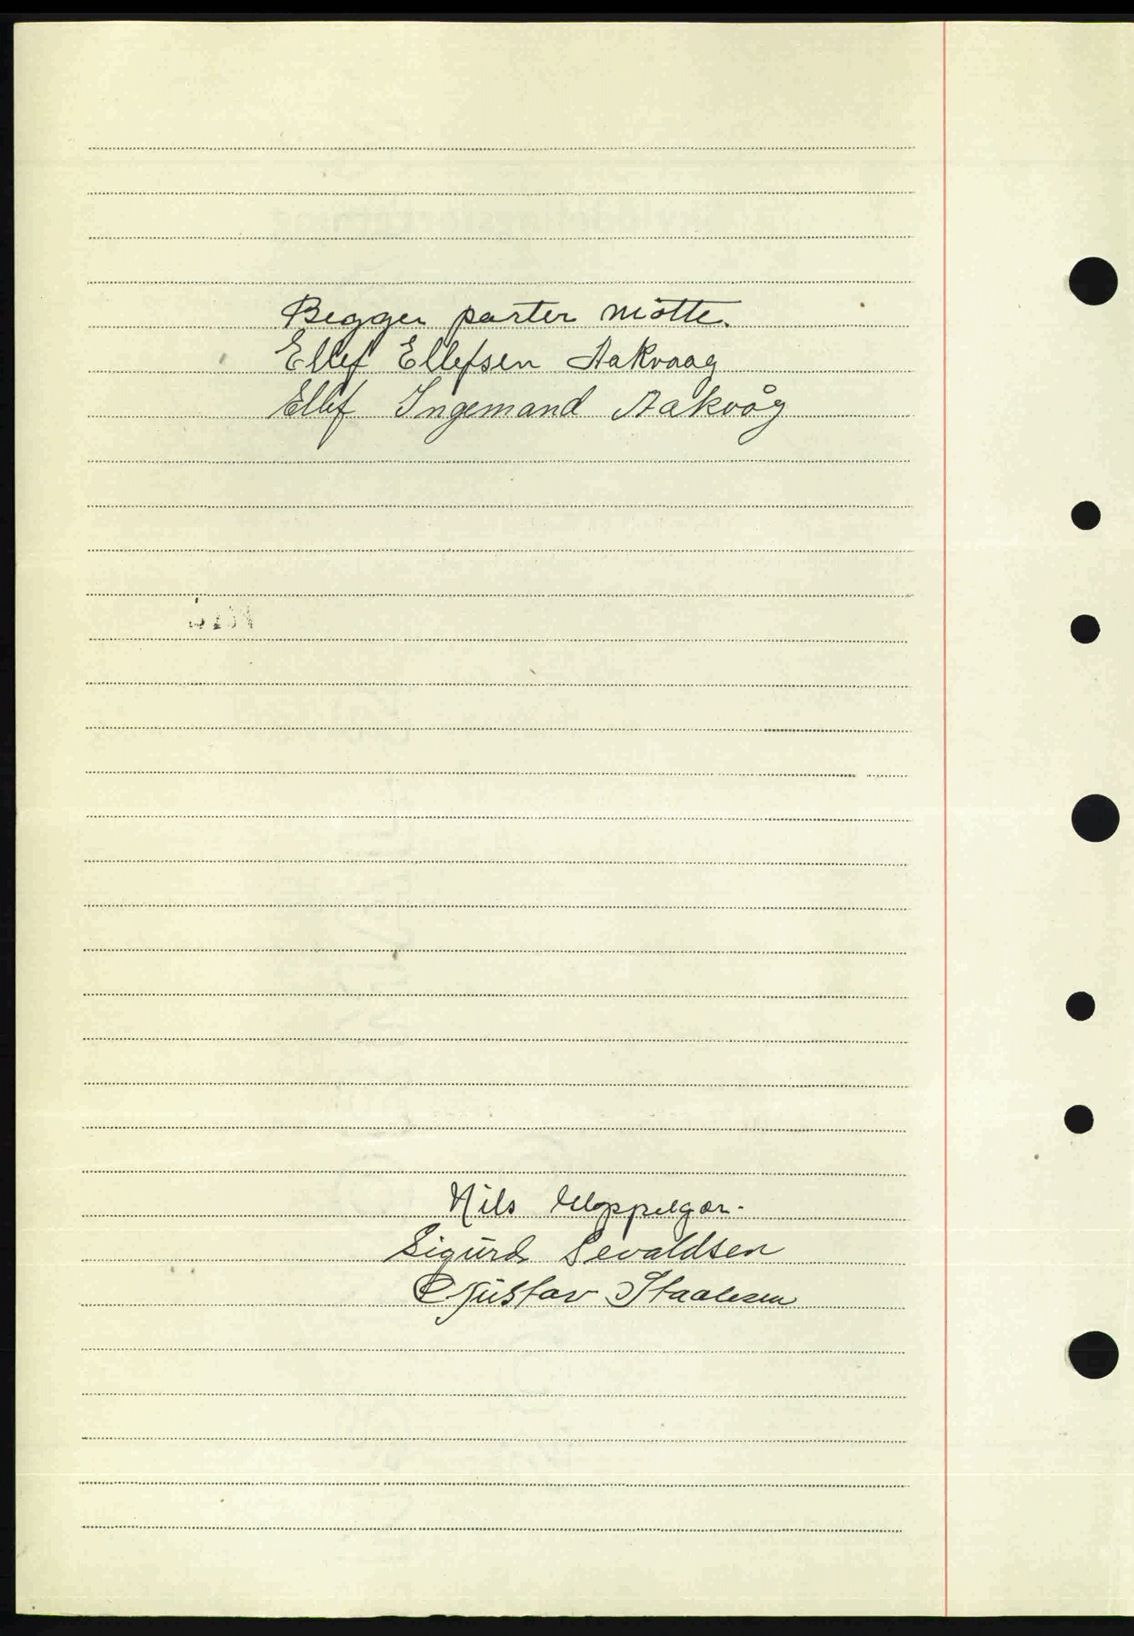 Begger parter møtte.
Ellef Ellefsen Aakvaag
Ellef Ingemand Aakvåg
Nils
Sigurd Sevaldsen
Gustav Staalesen